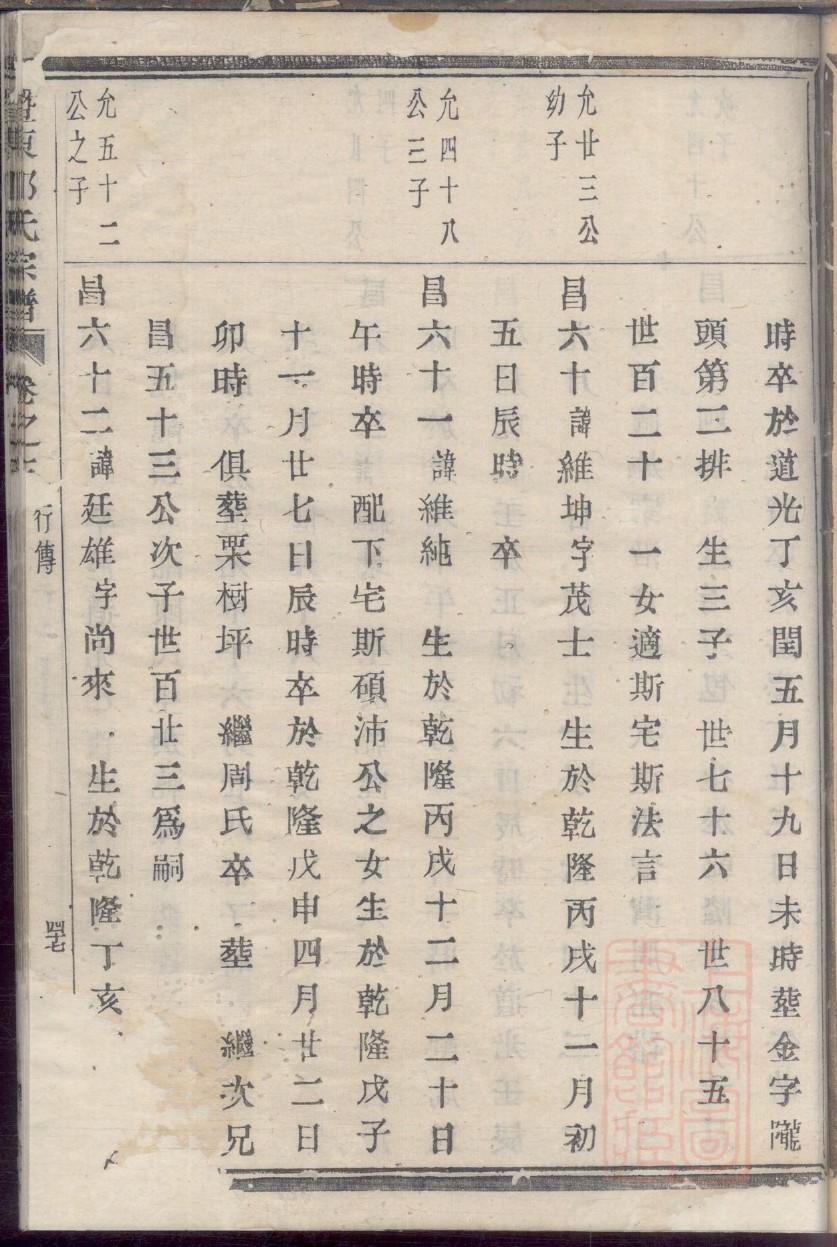 時卒於道光丁亥閏五月十九日未時塟金字隴
頭第二排 生三子 世七十六 世八十五
世百二十 一女適斯宅斯法言
允廿三公
幼子
昌六十諱維坤字茂士 生於乾隆丙戌十二月初
五日辰時 卒
允四十八
公三子
昌六十一諱維純 生於乾隆丙戌十二月二十日
午時卒 配下宅斯碩沛公之女生於乾隆戊子
十一月廿七日辰時卒於乾隆戊申四月廿二日
卯時 俱塟栗樹坪 繼周氏卒 塟 繼次兄
昌五十三公次子世百廿三爲嗣
允五十二
公之子
昌六十二諱廷雄字尚來 生於乾隆丁亥
暨東 氏宗譜 卷之 行傳 四十七